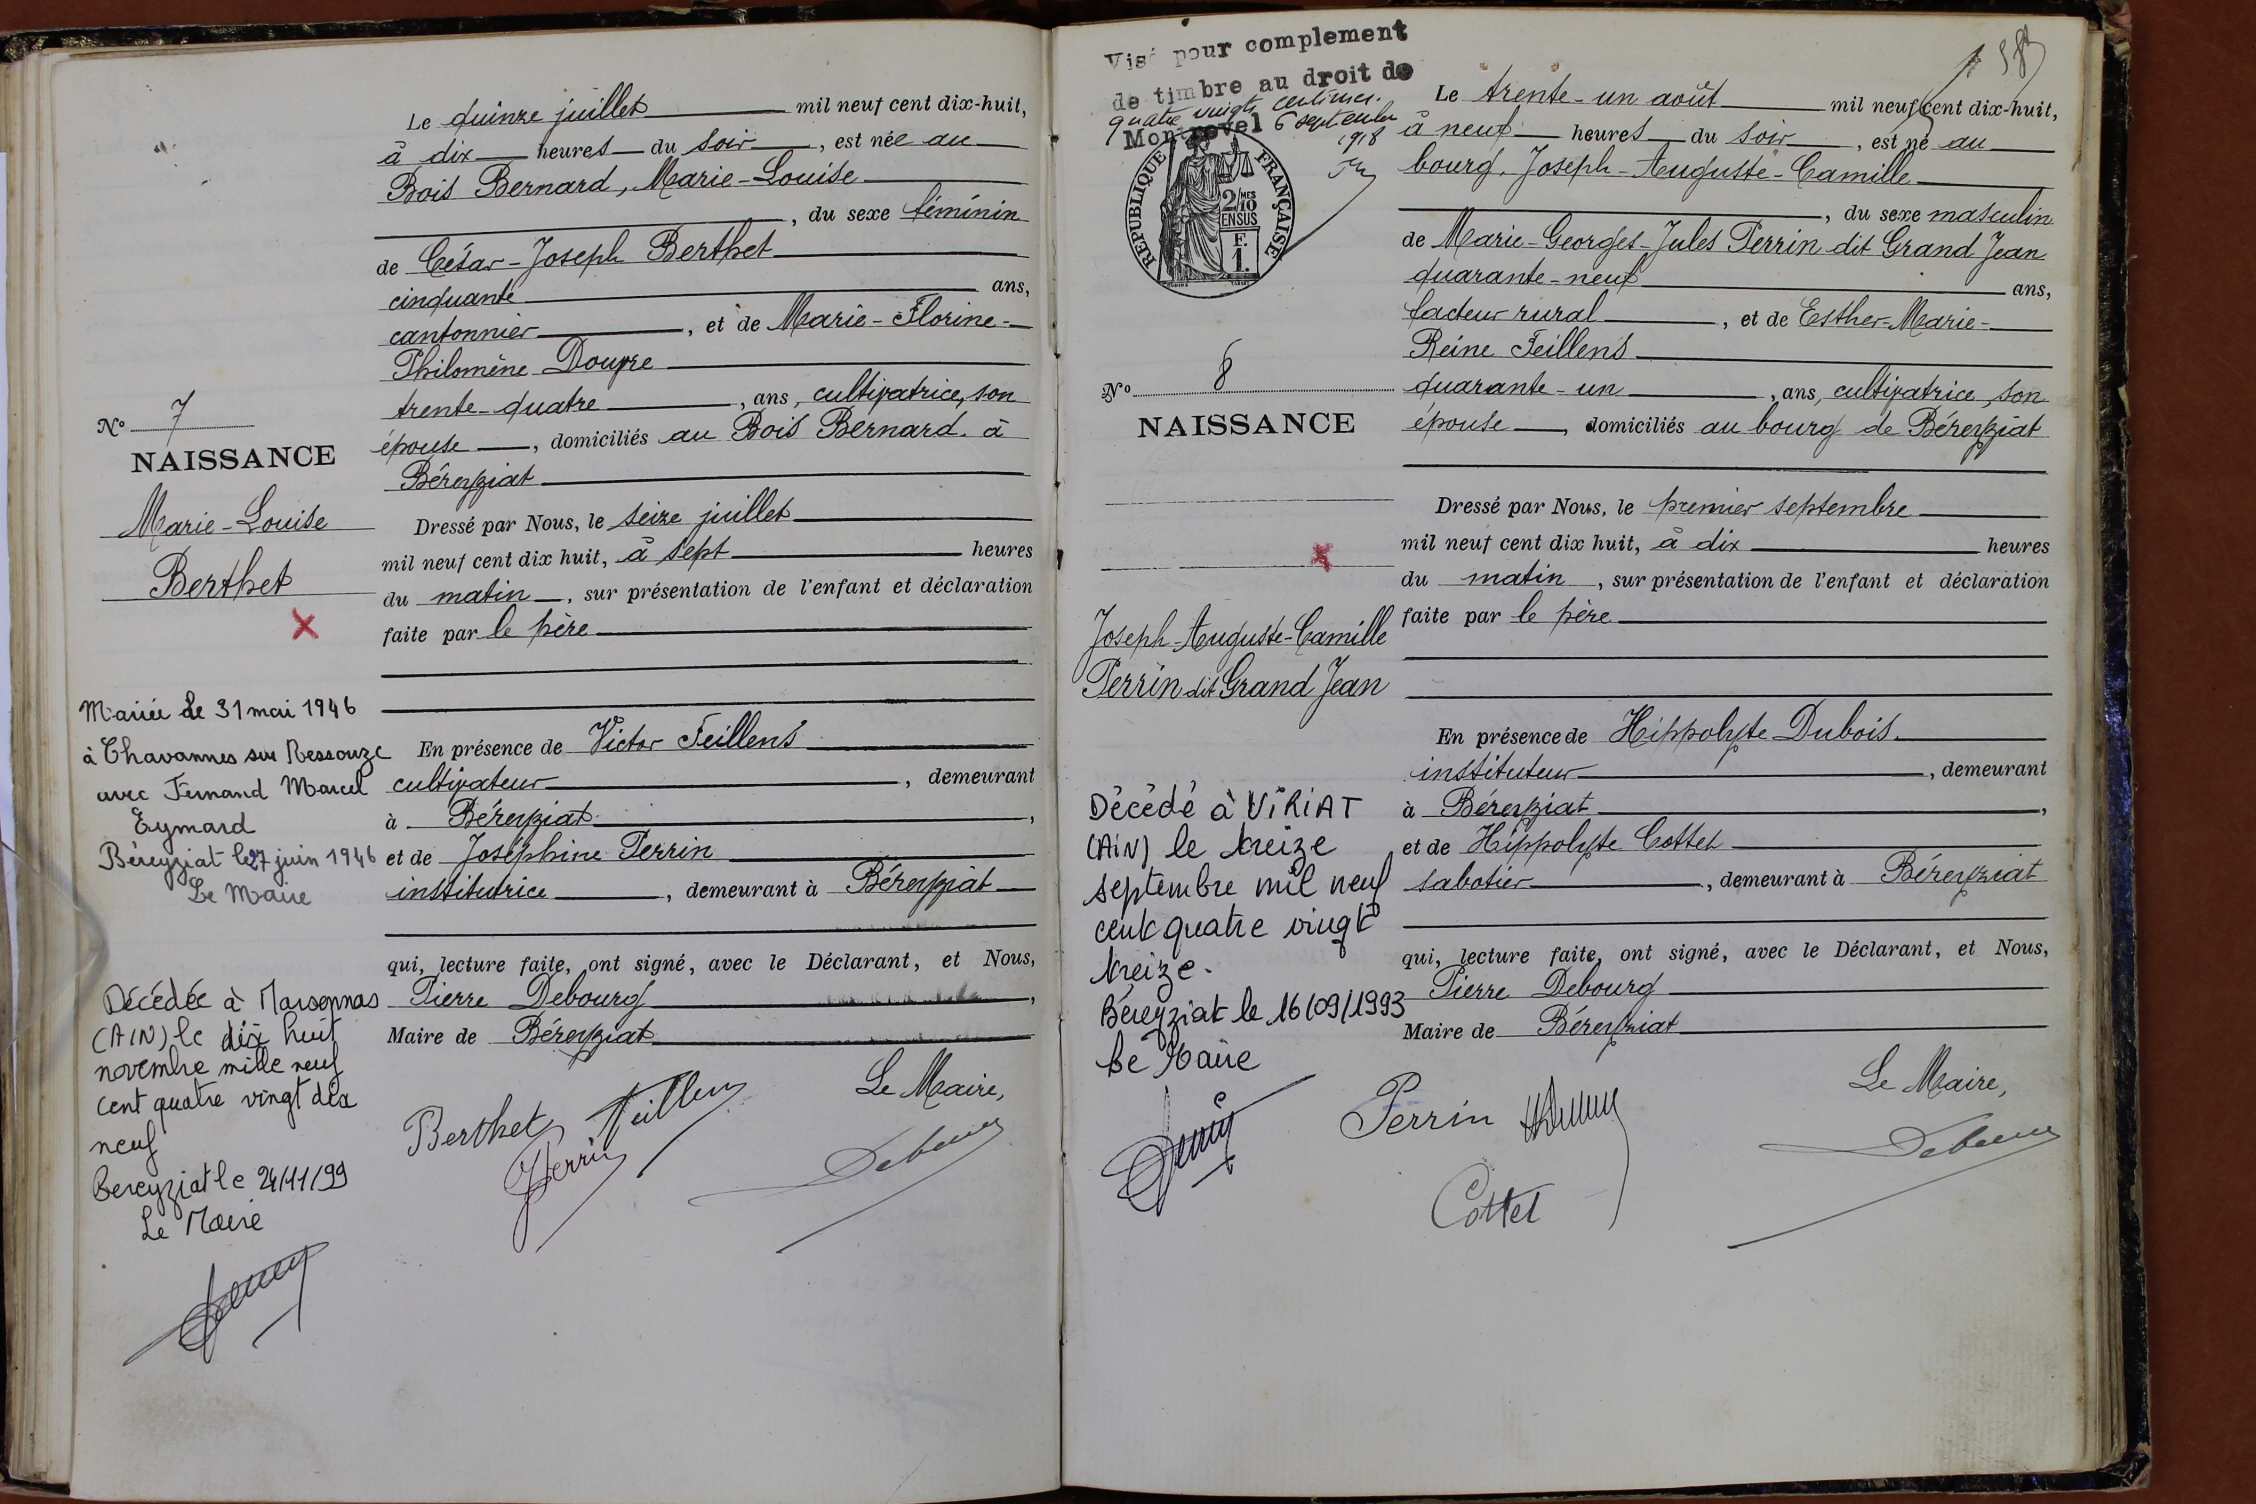 Le quinze juillet mil neuf cent dix-huit,
à dix heures du soir, est née au
Bois Bernard, Marie-Louise
, du sexe féminin
de César-Joseph Berthet
cinquante ans,
cantonnier, et de Marie-Florine-
Philomène Doupre
trente-quatre, ans, cultivatrice, son
épouse, domiciliés au Bois Bernard à
Béréyziat
Nº 7
NAISSANCE
Marie-Louise
Berthet
Dressé par Nous, le seize juillet
mil neuf cent dix huit, à sept heures
du matin, sur présentation de l'enfant et déclaration
faite par le père
Mariée le 31 mai 1946
à Chavannes sur Ressouze
avec Fernand Marcel
Eymard
Béreyziat le 27 juin 1946
Le Maire
En présence de Victor Feillens
cultivateur, demeurant
à Béréyziat,
et de Joséphine Perrin
institutrice, demeurant à Béréyziat
qui, lecture faite, ont signé, avec le Déclarant, et Nous,
Pierre Debourg,
Maire de Béréyziat
Décédée à Marsonnas
(AIN) le dix huit
novembre mille neuf
cent quatre vingt dix
neuf
Bereyziat le 24/11/99
Le Maire
Le Maire,
Berthet Feillens
Perrin
Debourg
Visé pour complement
de timbre au droit de
quatre vingts centimes.
Montrevel 6 septembre
1918
REPUBLIQUE FRANÇAISE
2/10 MES
EN SUS
F.
1.
583
Le trente-un août mil neuf cent dix-huit,
à neuf heures du soir, est né au
bourg, Joseph-Auguste-Camille
, du sexe masculin
de Marie-Georges-Jules Perrin dit Grand Jean
quarante-neuf ans,
facteur rural, et de Esther-Marie-
Reine Feillens
quarante-un, ans, cultivatrice, son
épouse, domiciliés au bourg de Béréyziat
Nº 8
NAISSANCE
Joseph-Auguste-Camille
Perrin dit Grand Jean
Dressé par Nous, le premier septembre
mil neuf cent dix huit, à dix heures
du matin, sur présentation de l'enfant et déclaration
faite par le père
En présence de Hippolyte Dubois.
instituteur, demeurant
à Béréyziat,
et de Hippolyte Cottet
sabotier, demeurant à Béréyziat
qui, lecture faite, ont signé, avec le Déclarant, et Nous,
Pierre Debourg
Maire de Béréyziat
Décédé à VIRIAT
(AIN) le treize
septembre mil neuf
cent quatre vingt
treize.
Béreyziat le 16/09/1993
Le Maire
Le Maire,
Perrin HDubois
Cottet
Debourg